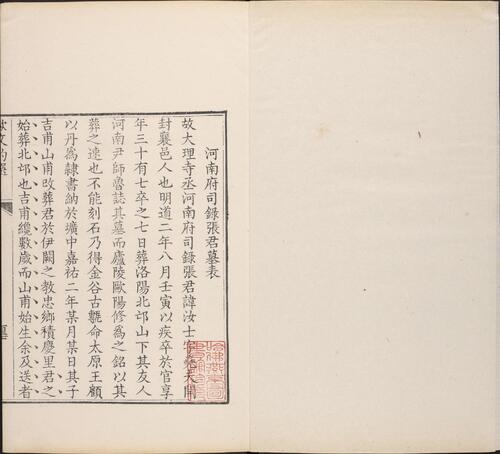 河南府司錄張君墓表
故大理寺丞河南府司錄張君諱汝士字堯夫開
封襄邑人也明道二年八月壬寅以疾卒於官享
年三十有七卒之七日葬洛陽北邙山下其友人
河南尹師魯誌其墓而廬陵歐陽修為之銘以其
葬之速也不能刻石乃得金谷古甎命太原王顧
以丹為隸書納於壙中嘉祐二年某月某日其子
吉甫山甫改葬君於伊闕之教忠鄉積慶里君之
始葬北邙也吉甫纔數歲而山甫始生余及送者
歐文約選